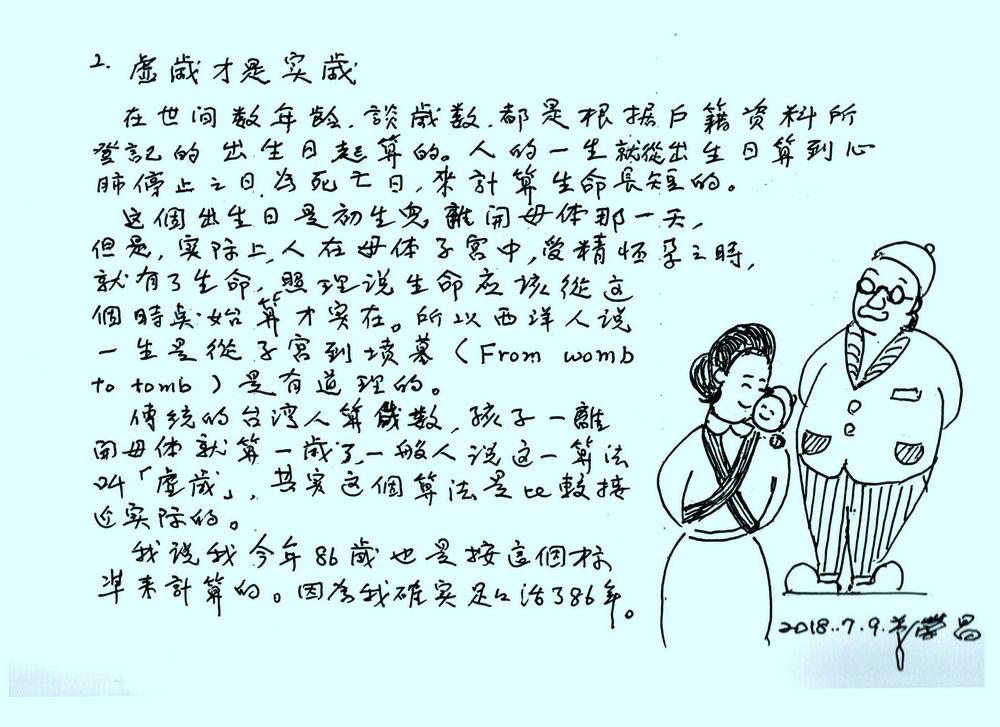 2. 虛歲才是实歲
在世间数年龄、談歲数、都是根据户籍资料所
登記的出生日起算的。人的一生就從出生日算到心
肺停止之日為死亡日，來計算生命長短的。
这個出生日是初生児離開母体那一天，
但是，实际上，人在母体子宮中，受精怀孕之時，
就有了生命，照理说生命应该從这
個時奌始算才实在。所以西洋人说
一生是從子宮到墳墓（From womb
to tomb）是有道理的。
傳統的台湾人算歲数，孩子一離
開母体就算一歲了，一般人说这一算法
叫「虛歲」，其实这個算法是比較接
近实际的。
我说我今年86歲也是按這個标
準来計算的。因為我確实足々活了86年。
2018..7.9.